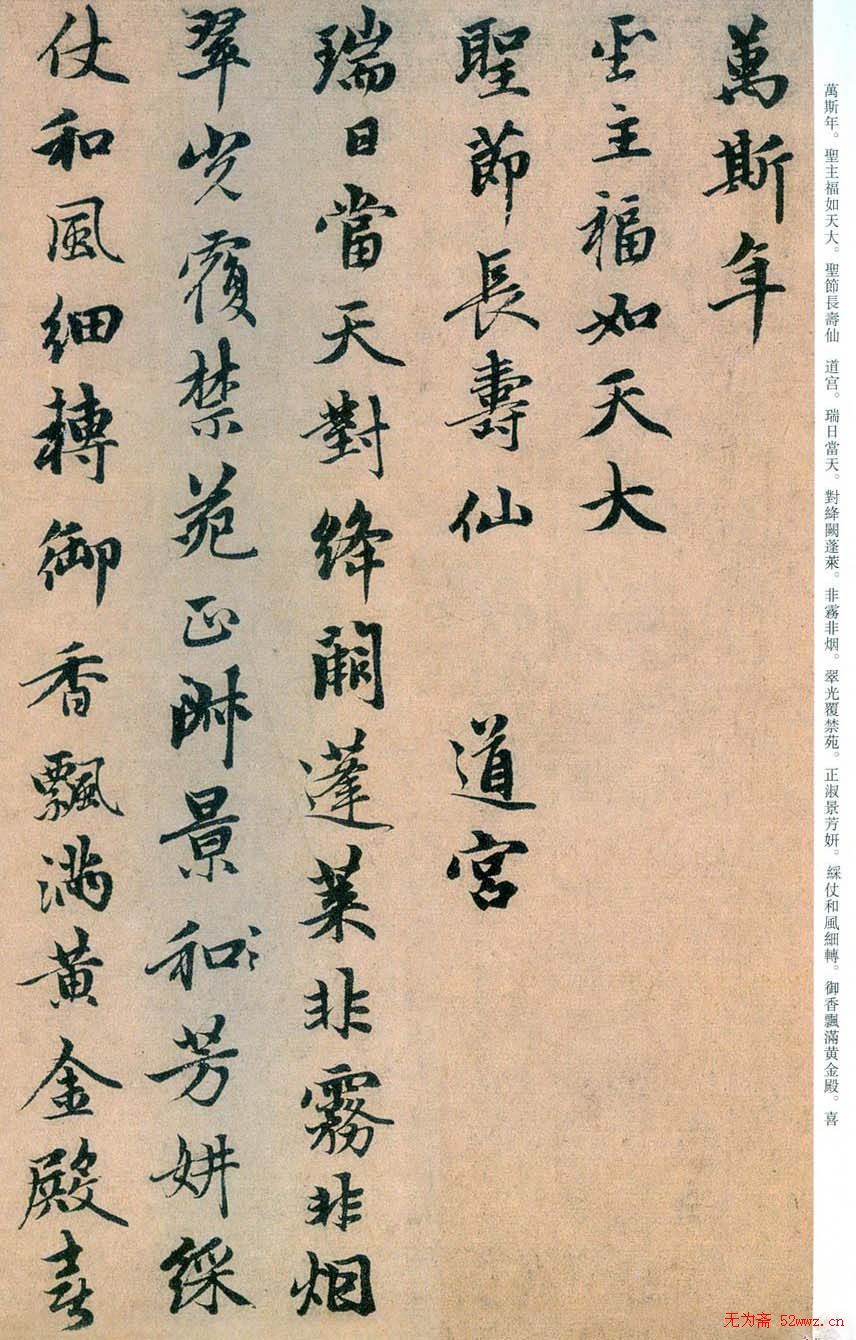 萬斯年。聖主福如天大。聖節長壽仙　道宫。瑞日當天。對絳闕蓬萊。非霧非烟。翠光覆禁苑。正淑景芳妍。綵仗和風細轉。御香飄滿黄金殿。喜
萬斯年
聖主福如天大
聖節長壽仙　道宮
瑞日當天對絳闕蓬萊非霧非烟
翠光覆禁苑正淑景和芳妍綵
仗和風細轉御香飄滿黄金殿喜
无为斋 52wwz.cn